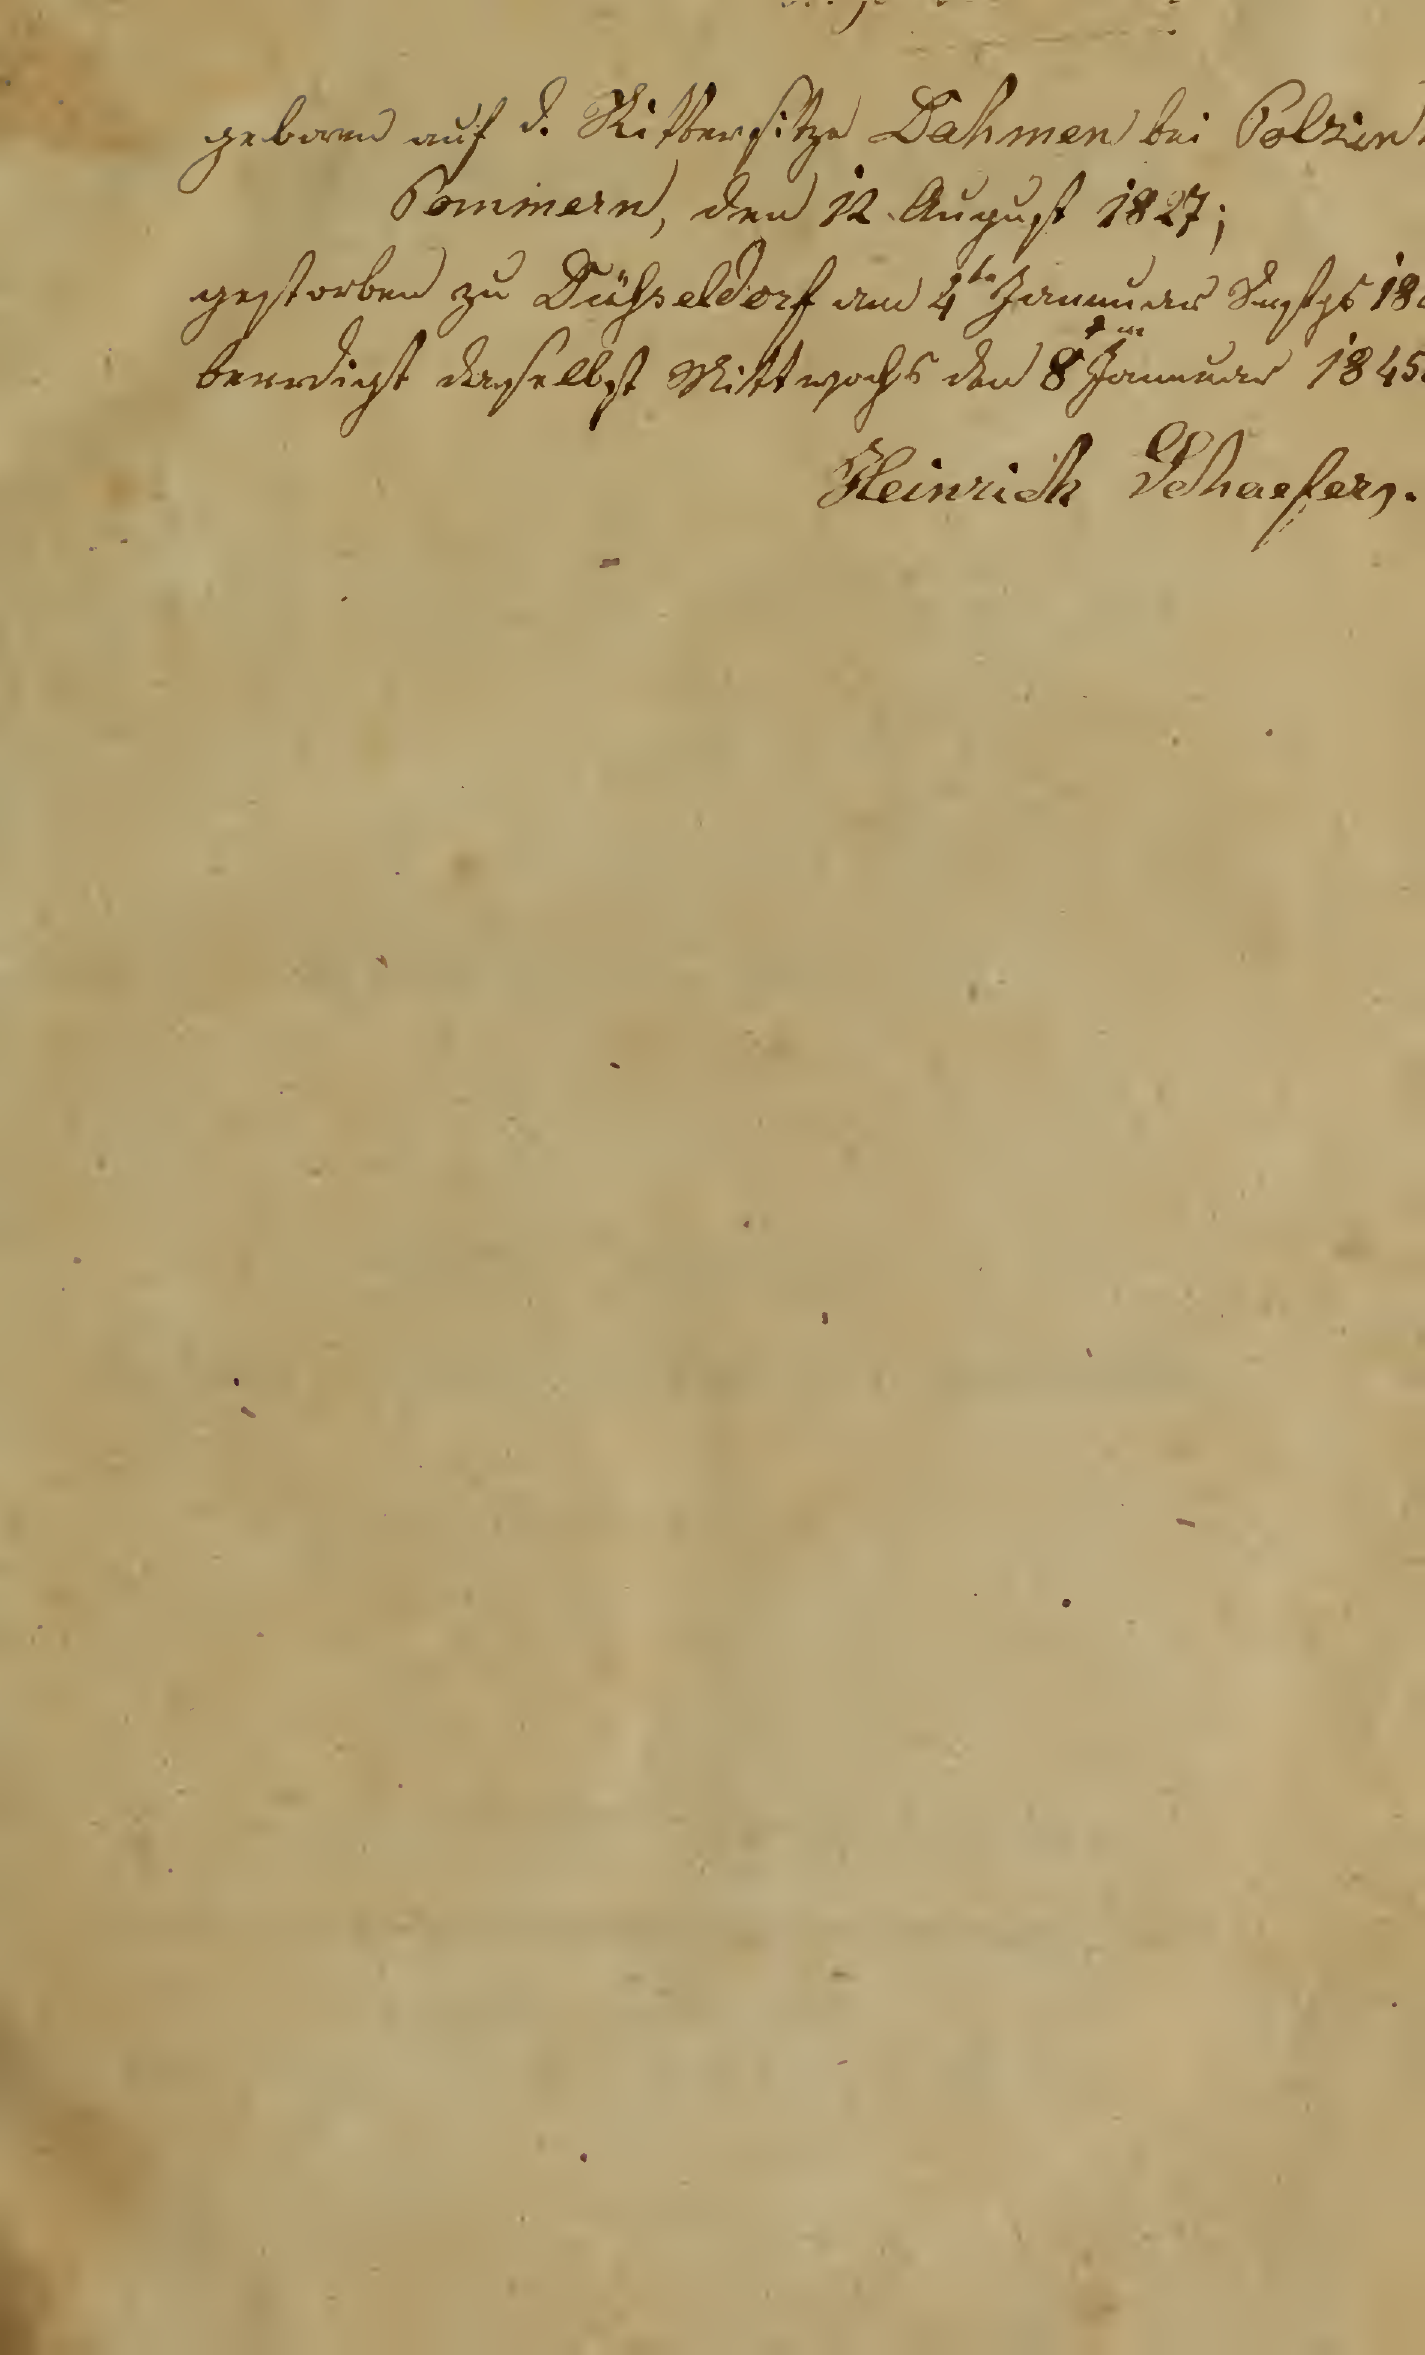 geboren auf d. Rittersitze Dahmen bei Polzin
Pommern, den 12. August 1827;
gestorben zu Düsseldorf am 4ten Januar 18
beerdigt daselbst Mittwochs den 8 Januar 1845.
Heinrich Schaefers.